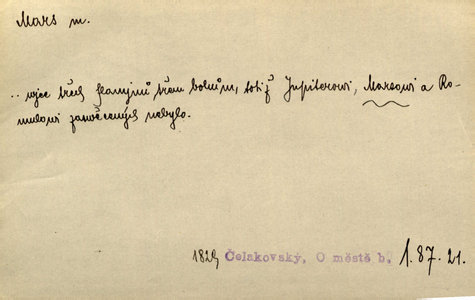 Mars m.
.. více třech flamínů třem bohům, totiž Jupiterovi, Marsovi a Ro-
mulovi zasvěcených nebylo.
1829 Čelakovský, O městě b. 1. 87. 21.